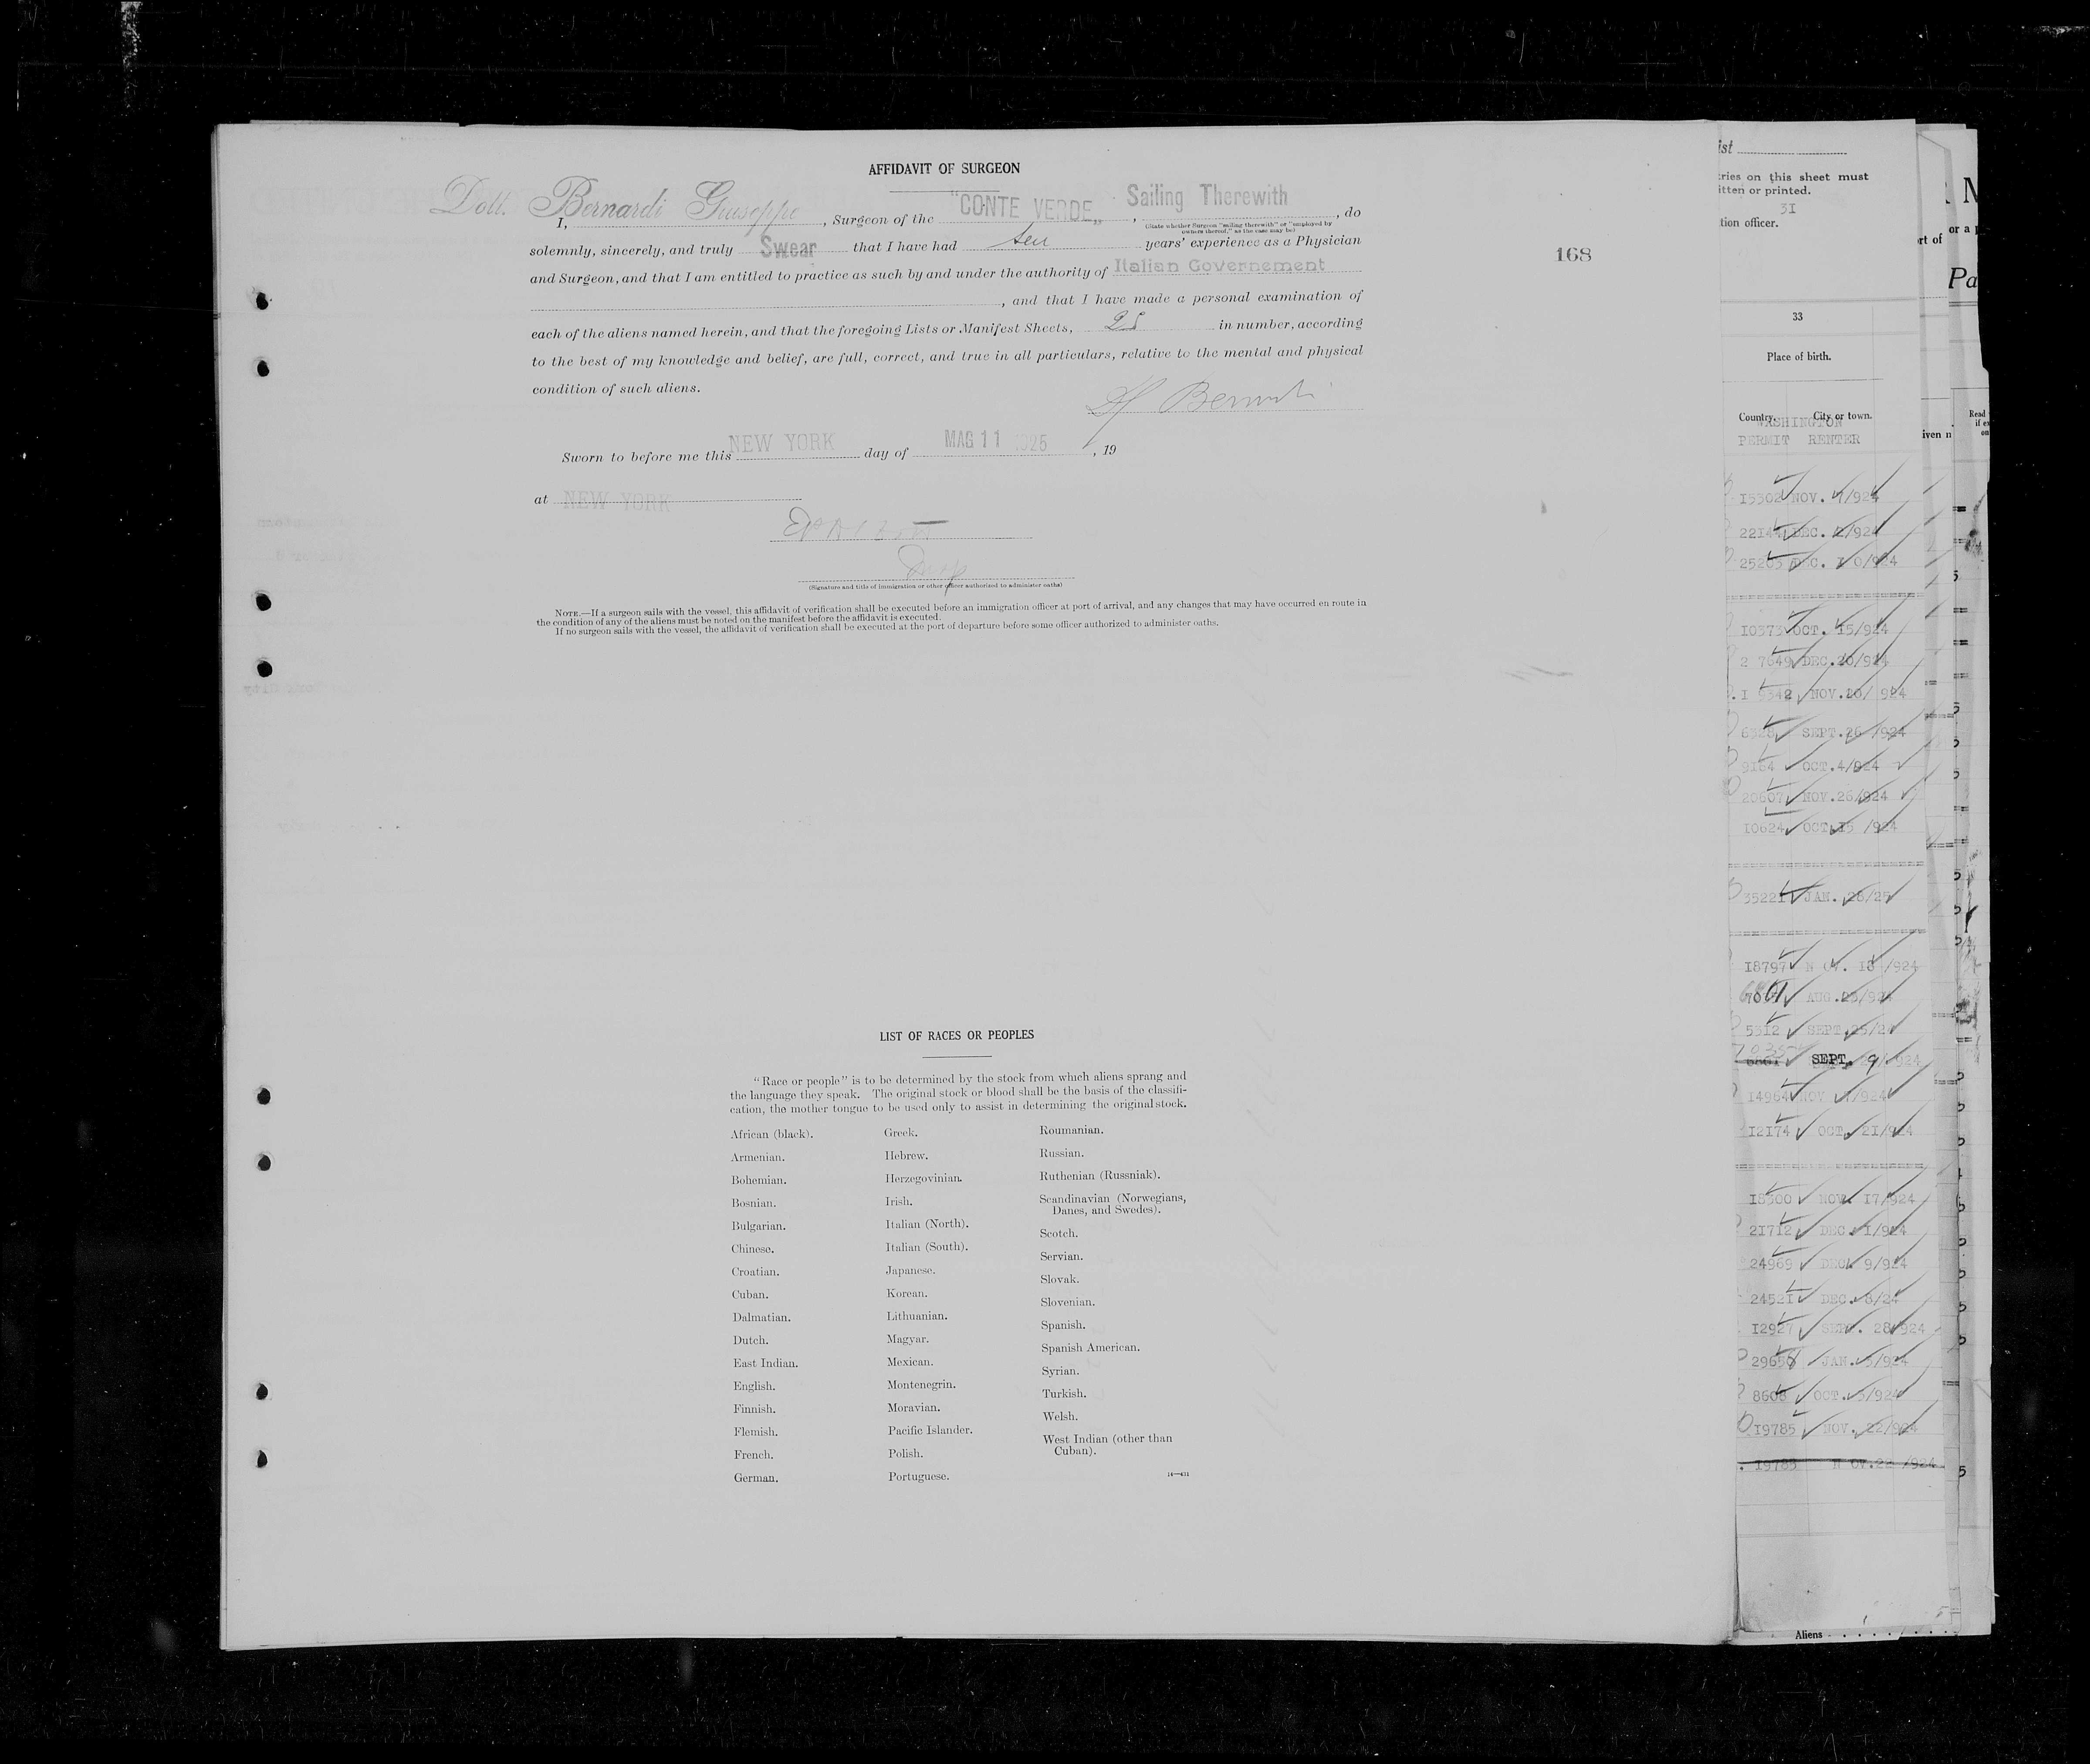 AFFIDAVIT OF SURGEON
I, Dott. Bernardi Giuseppe, Surgeon of the "CONTE VERDE", Sailing Therewith, do
(State whether Surgeon "sailing therewith" or "employed by
owners thereof," as the case may be)
solemnly, sincerely, and truly Swear that I have had ten years' experience as a Physician
and Surgeon, and that I am entitled to practice as such by and under the authority of Italian Governement
, and that I have made a personal examination of
each of the aliens named herein, and that the foregoing Lists or Manifest Sheets, in number, according
to the best of my knowledge and belief, are full, correct, and true in all particulars, relative to the mental and physical
condition of such aliens.
168
Sworn to before me this NEW YORK day of MAG 11 1925, 19
at NEW YORK
(Signature and title of immigration or other officer authorized to administer oaths)
NOTE.—If a surgeon sails with the vessel, this affidavit of verification shall be executed before an immigration officer at port of arrival, and any changes that may have occurred en route in
the condition of any of the aliens must be noted on the manifest before the affidavit is executed.
If no surgeon sails with the vessel, the affidavit of verification shall be executed at the port of departure before some officer authorized to administer oaths.
LIST OF RACES OR PEOPLES
"Race or people" is to be determined by the stock from which aliens sprang and
the language they speak. The original stock or blood shall be the basis of the classifi-
cation, the mother tongue to be used only to assist in determining the original stock.
African (black).
Armenian.
Bohemian.
Bosnian.
Bulgarian.
Chinese.
Croatian.
Cuban.
Dalmatian.
Dutch.
East Indian.
English.
Finnish.
Flemish.
French.
German.
Greek.
Hebrew.
Herzegovinian.
Irish.
Italian (North).
Italian (South).
Japanese.
Korean.
Lithuanian.
Magyar.
Mexican.
Montenegrin.
Moravian.
Pacific Islander.
Polish.
Portuguese.
Roumanian.
Russian.
Ruthenian (Russniak).
Scandinavian (Norwegians,
Danes, and Swedes).
Scotch.
Servian.
Slovak.
Slovenian.
Spanish.
Spanish American.
Syrian.
Turkish.
Welsh.
West Indian (other than
Cuban).
14—431
ist
tries on this sheet must
itten or printed.
31
tion officer.
33
Place of birth.
Country. City or town.
WASHINGTON
PERMIT RENTER
15302 NOV. /924
DEC. /924
25203 DEC. 10/924
10373 OCT. 15/924
2 7649 DEC.20/924
NOV. / 924
SEPT.26 /924
9164 OCT.4/924
20607 NOV.26/924
10624 OCT.15 /924
35221 JAN. 26/25
18797 N OV. 18 /924
AUG. /924
5312 SEPT. 25/24
SEPT. 9 /924
14964 NOV /924
12174 OCT. 21/924
18500 NOV. 17/924
21712 DEC. 1/924
24969 DEC. 9/924
24521 DEC. 8/24
12927 SEPT. 28/924
JAN. 5/924
8608 OCT. 5/924
19785 NOV. 22/924
19785 N OV.22 /924
rt of
or a p
Pa
iven n
Read
if ex
on
Aliens